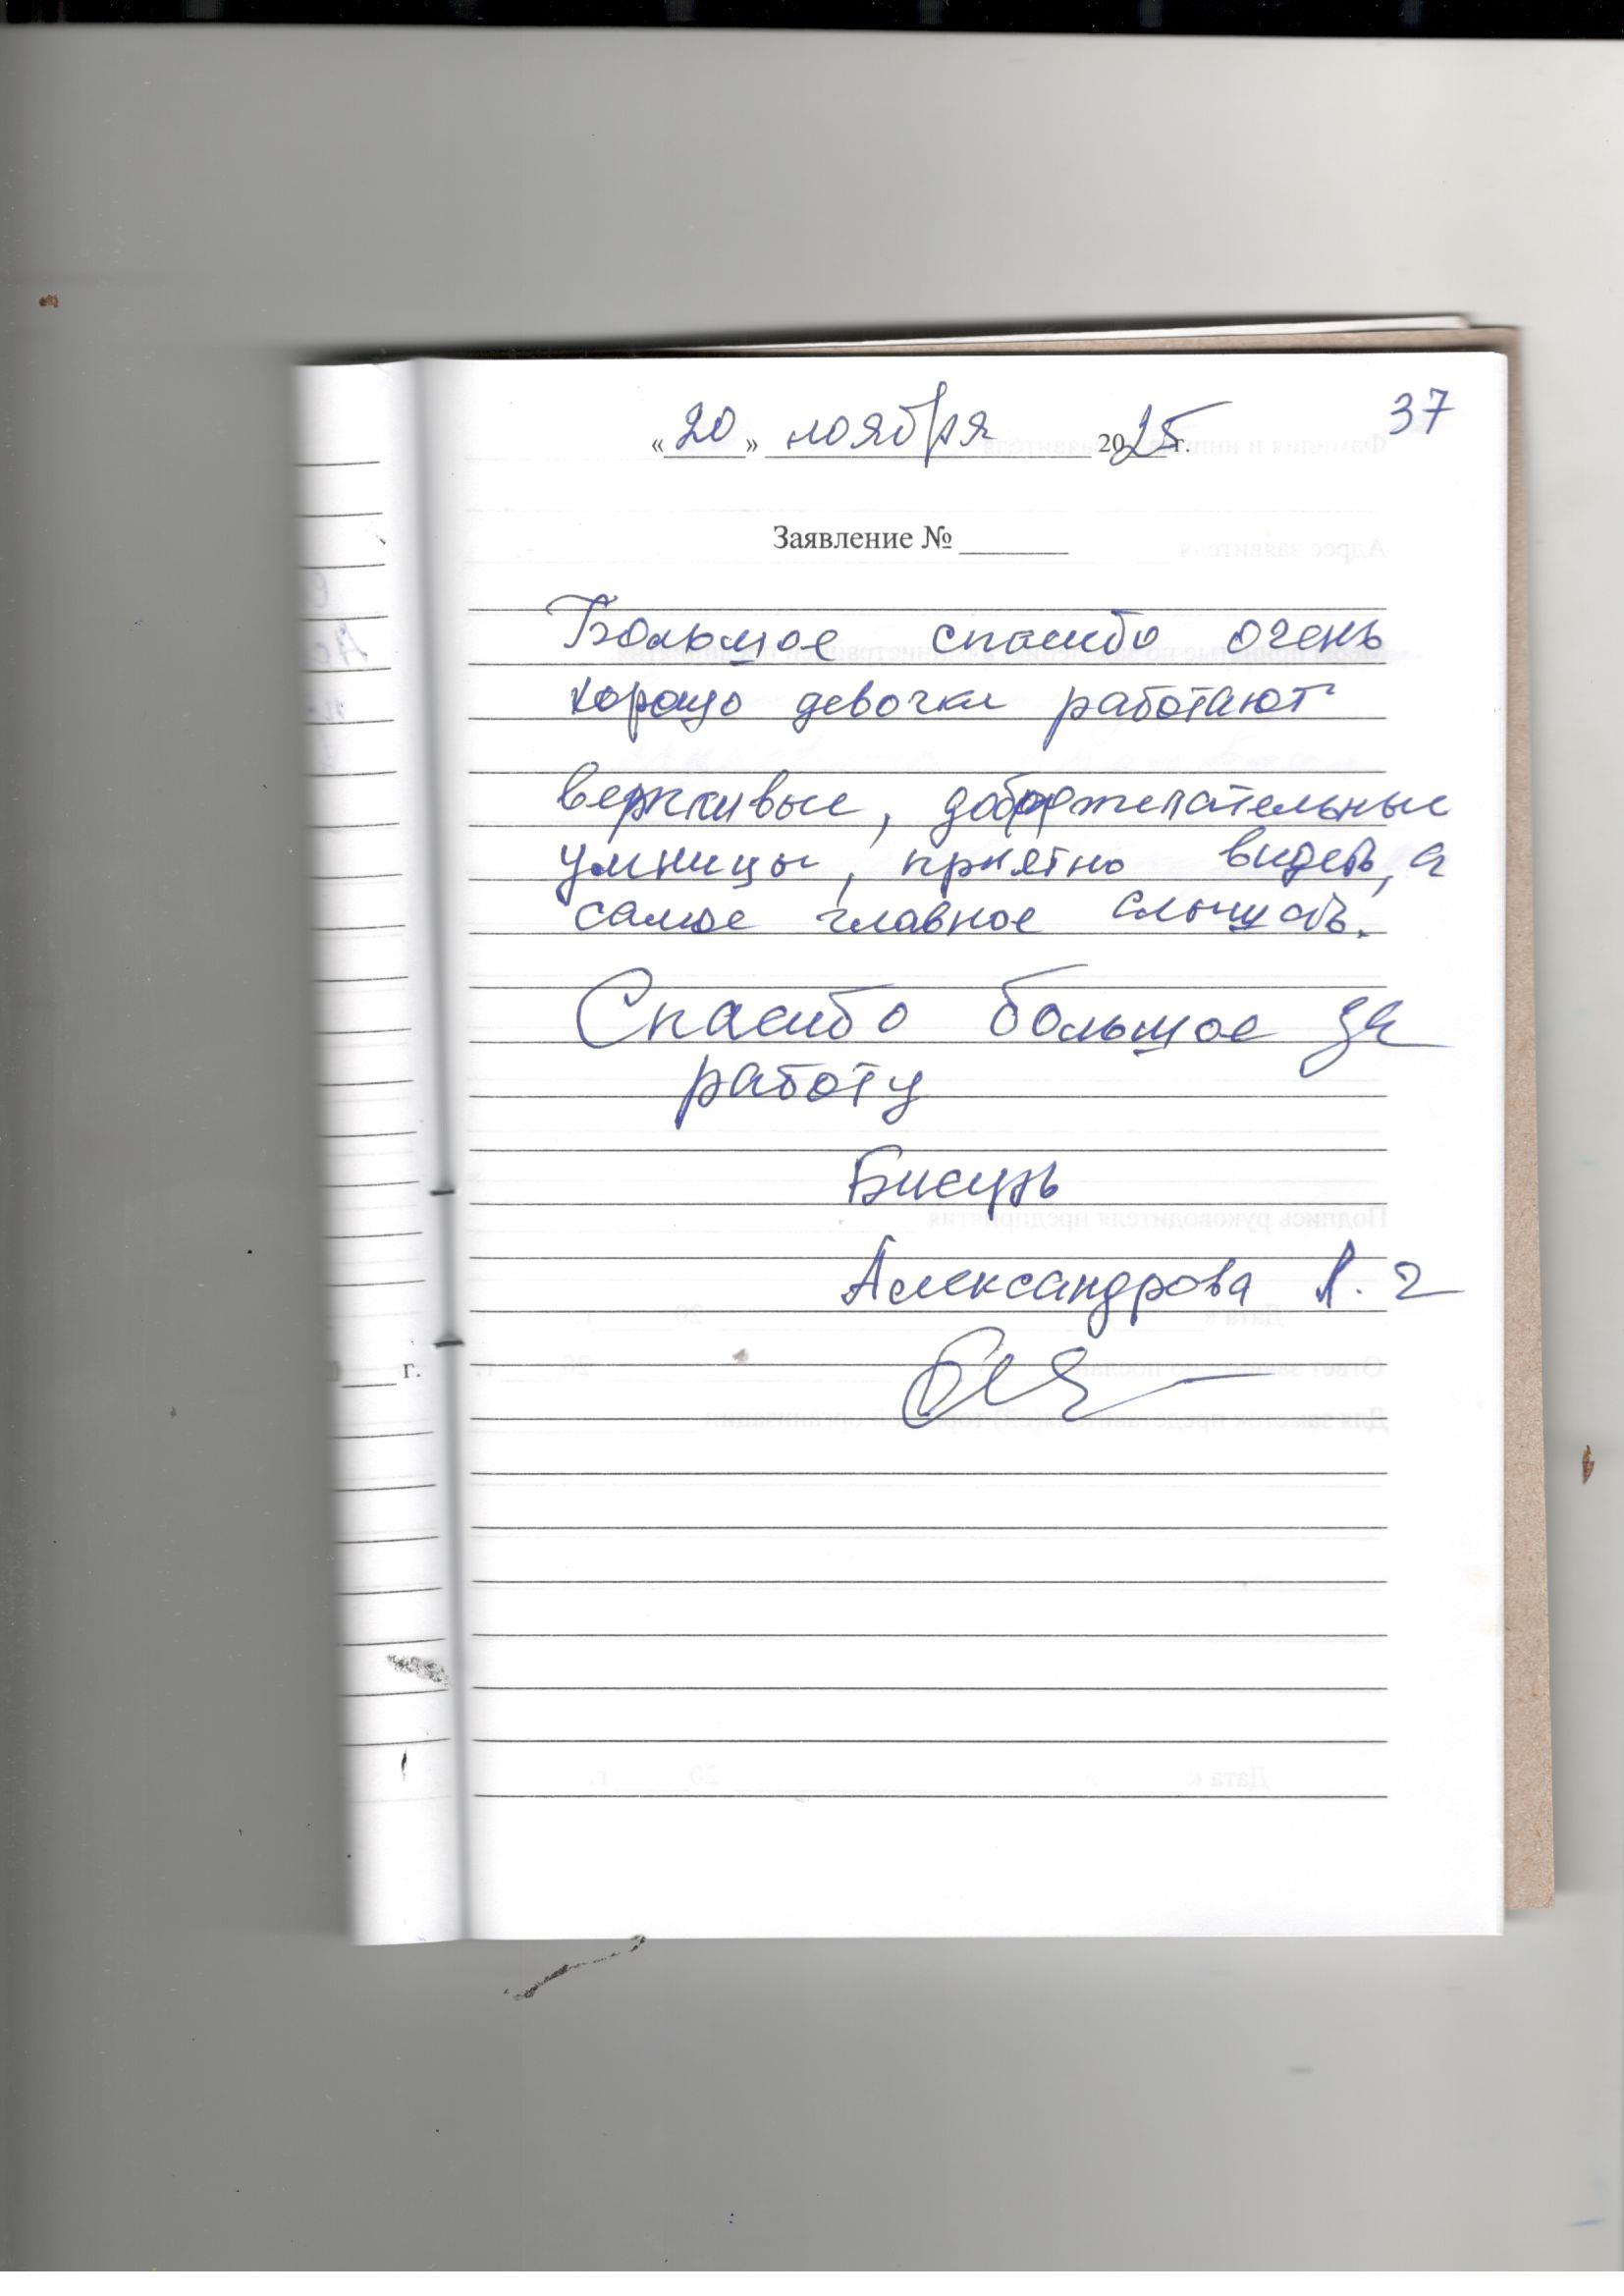 37
«20» ноября 2025 г.
Заявление №
Большое спасибо очень
хорошо девочки работают
вежливые, доброжелательные
умницы, приятно видеть, а
самое главное слышать.
Спасибо большое за
работу
Александрова Л. Г
г.